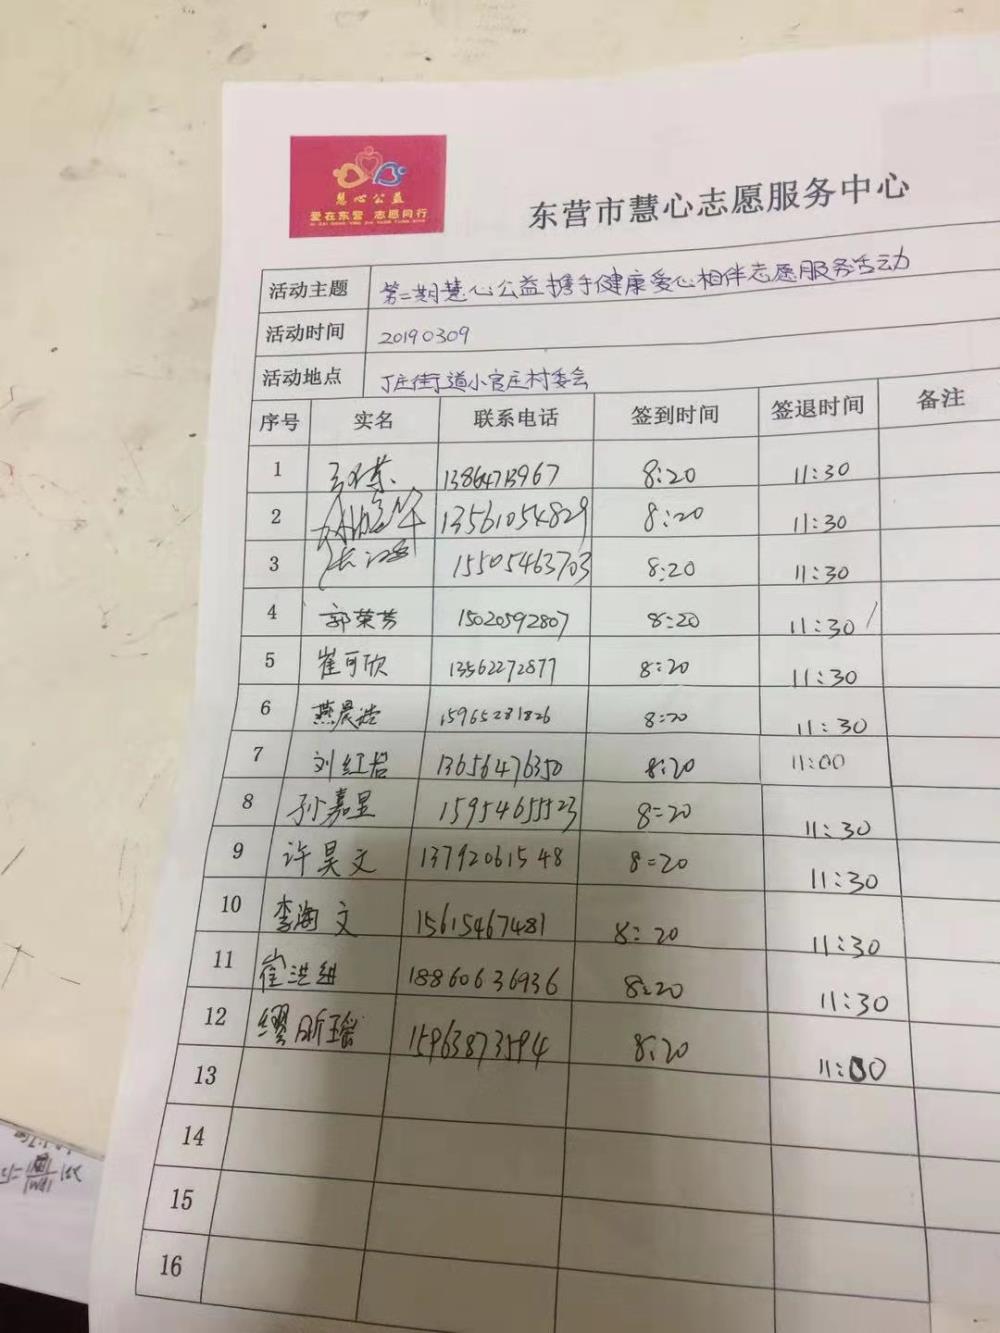 慧心公益
爱在东营 志愿同行
东营市慧心志愿服务中心
活动主题 第二期慧心公益携手健康爱心相伴志愿服务活动
活动时间 20190309
活动地点 丁庄街道小官庄村委会
序号 实名 联系电话 签到时间 签退时间 备注
1 13864713967 8:20 11:30
2 13561054829 8:20 11:30
3 15505463703 8:20 11:30
4 郭荣芳 15020592807 8:20 11:30
5 崔可欣 13562272877 8:20 11:30
6 燕晨浩 15965281826 8:20 11:30
7 刘红岩 13656476350 8:20 11:00
8 孙嘉呈 15954655523 8:20 11:30
9 许昊文 13792061548 8:20 11:30
10 李海文 15615467481 8:20 11:30
11 崔洪 18860636936 8:20 11:30
12 缪昕瑶 15963873594 8:20 11:00
13
14
15
16